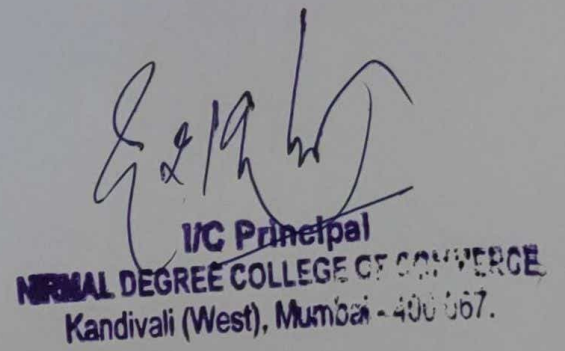 I/C Principal
NIRMAL DEGREE COLLEGE OF COMMERCE
Kandivali (West), Mumbai - 400 067.